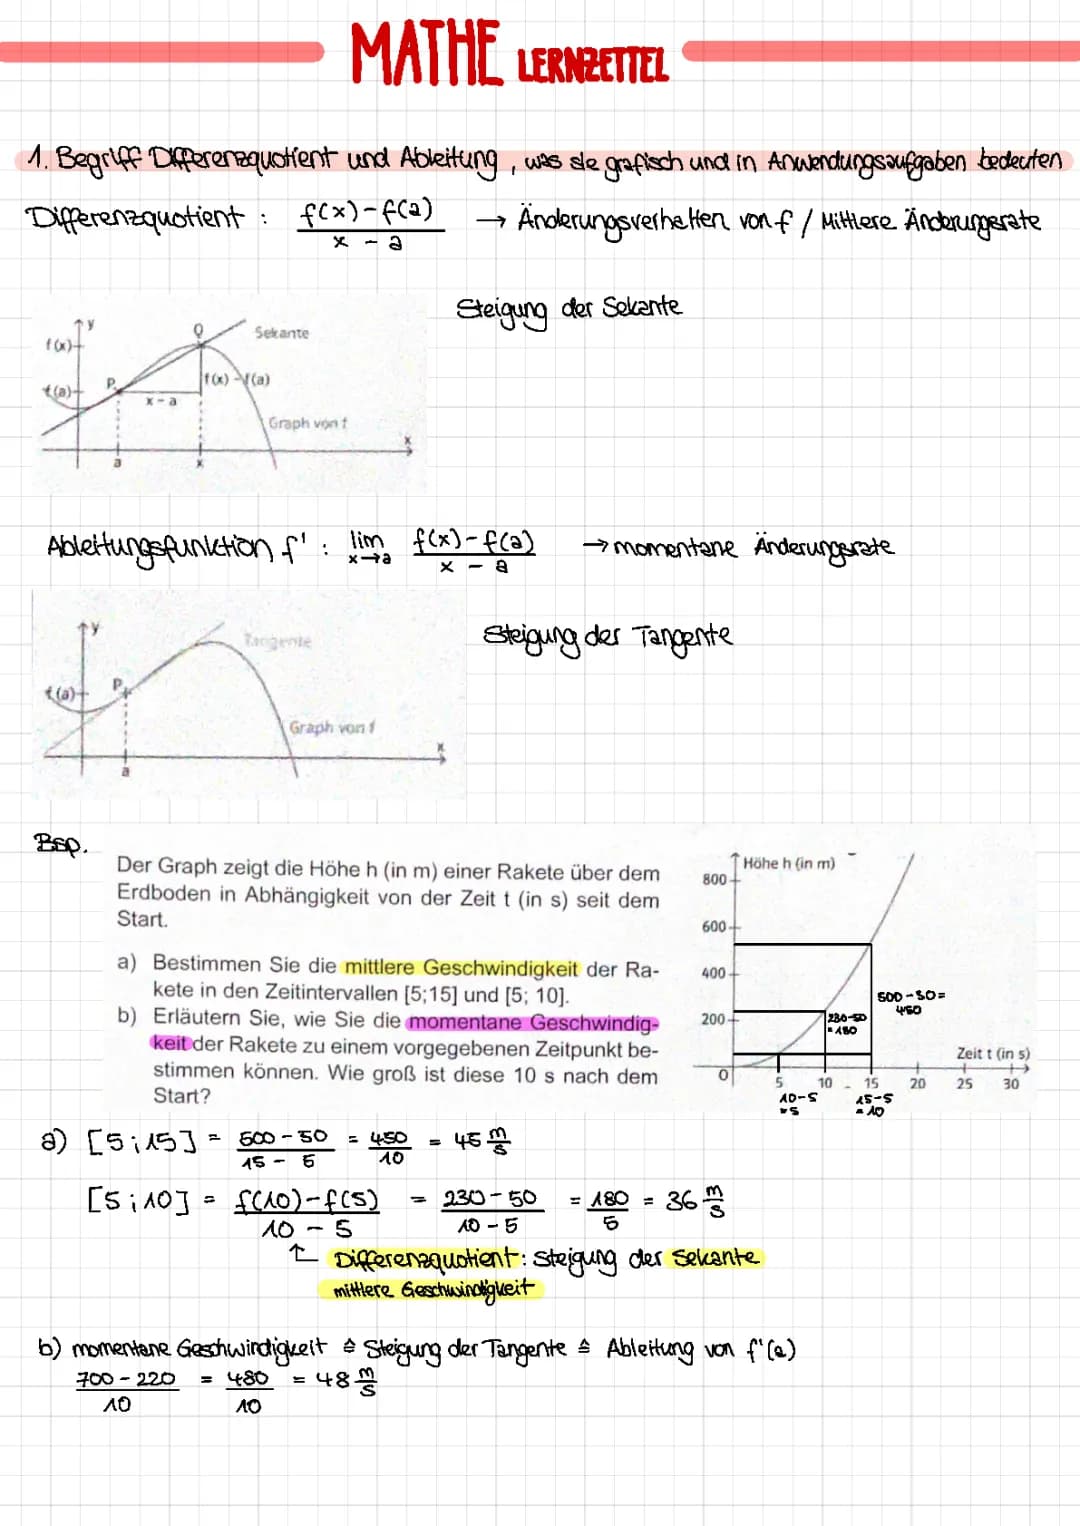 MATHE LERNZETTEL
1. Begriff Differenzquotient und Ableitung, was sie grafisch und in Anwendungsaufgaben bedeuten
Differenzquotient : f(x)-f(a) / x - a → Änderungsverhalten von f / Mittlere Änderungsrate
Steigung der Sekante
y
f(x)
Q
Sekante
f(a)
P
f(x)-f(a)
x-a
Graph von f
x
a
x
Ableitungsfunktion f' : lim x→a f(x)-f(a) / x - a → momentane Änderungsrate
Steigung der Tangente
y
Tangente
f(a)
P
Graph von f
x
a
Bsp.
Der Graph zeigt die Höhe h (in m) einer Rakete über dem
Erdboden in Abhängigkeit von der Zeit t (in s) seit dem
Start.
a) Bestimmen Sie die mittlere Geschwindigkeit der Ra-
kete in den Zeitintervallen [5;15] und [5; 10].
b) Erläutern Sie, wie Sie die momentane Geschwindig-
keit der Rakete zu einem vorgegebenen Zeitpunkt be-
stimmen können. Wie groß ist diese 10 s nach dem
Start?
Höhe h (in m)
800
600
400
200
0
500-50=
450
230-50
=180
Zeit t (in s)
5 10 15 20 25 30
10-5
=5
15-5
=10
a) [5;15] = 500-50 / 15-5 = 450 / 10 = 45 m/s
[5;10] = f(10)-f(5) / 10-5 = 230-50 / 10-5 = 180 / 5 = 36 m/s
↑ Differenzquotient: Steigung der Sekante
mittlere Geschwindigkeit
b) momentane Geschwindigkeit ≙ Steigung der Tangente ≙ Ableitung von f'(a)
700-220 / 10 = 480 / 10 = 48 m/s